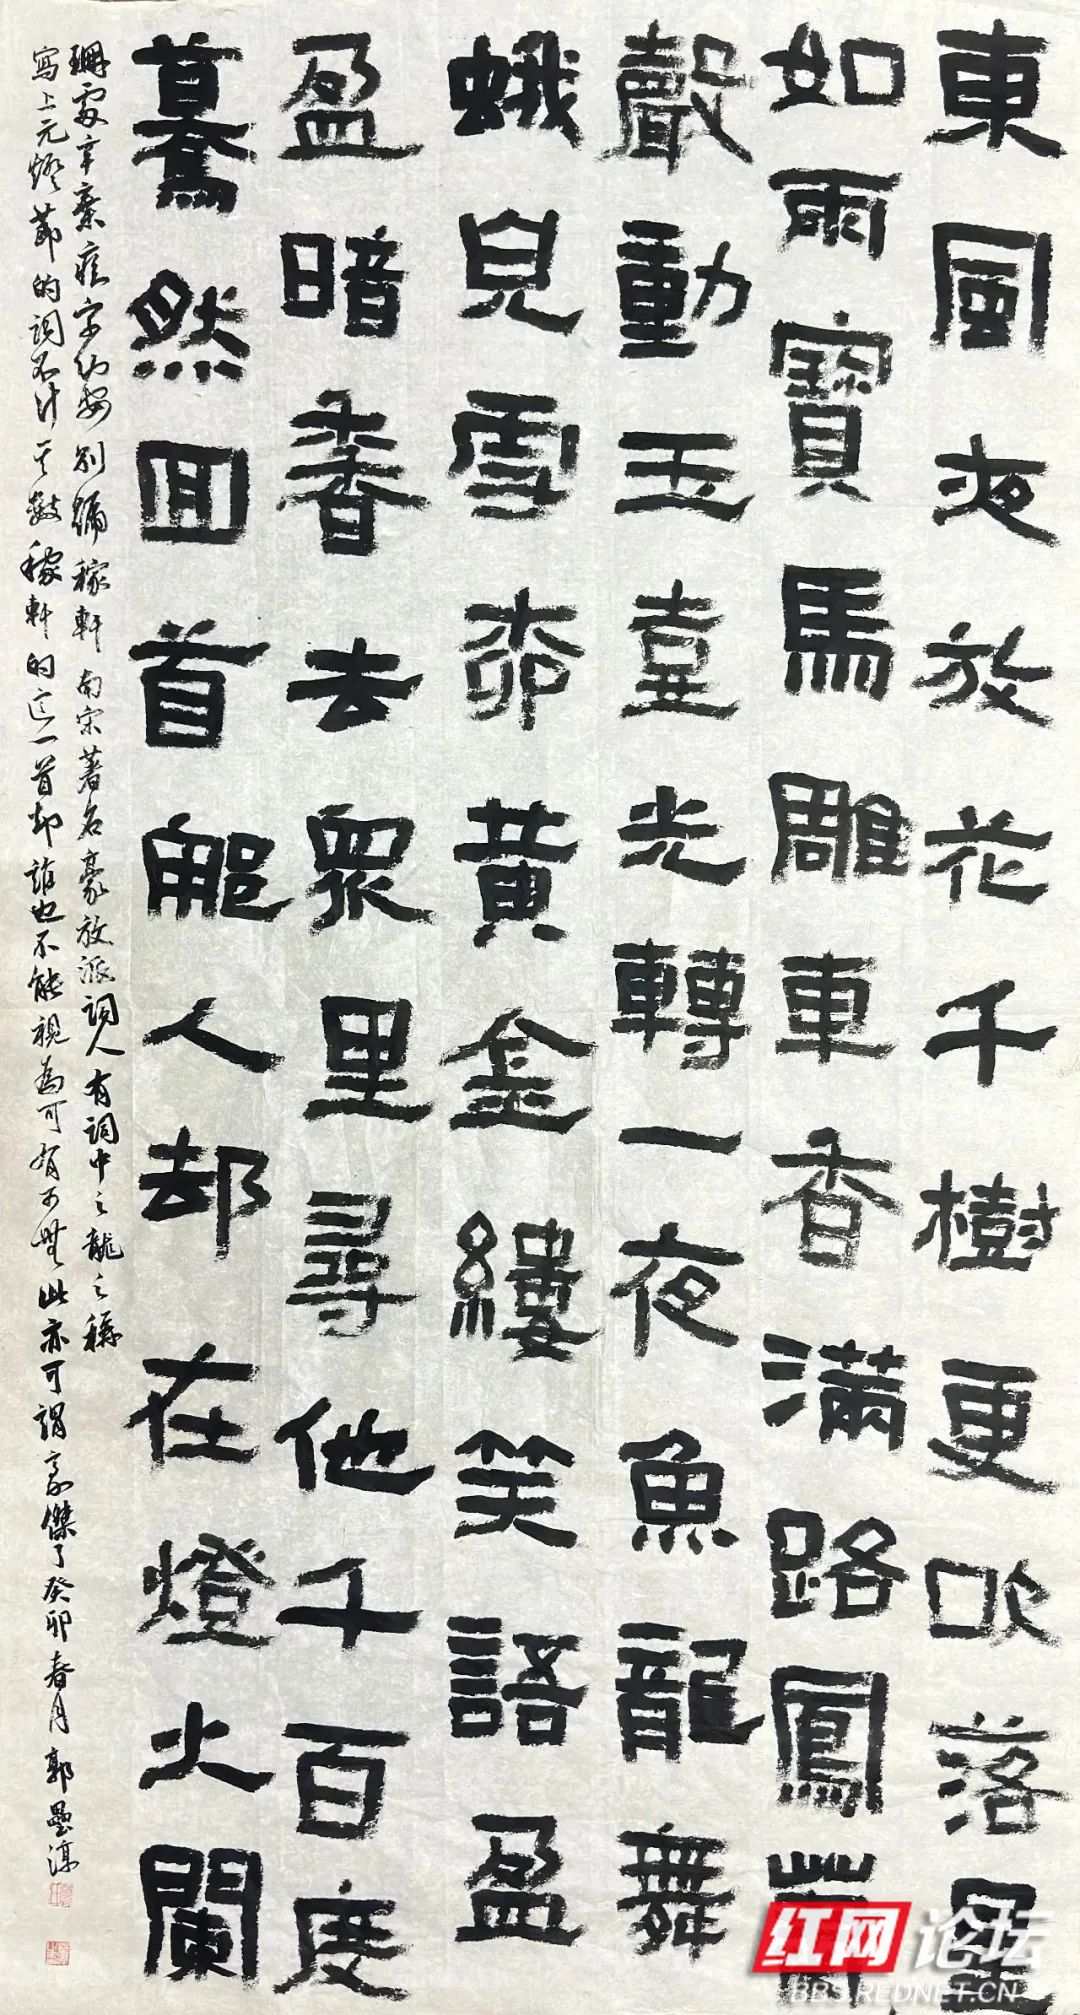 東風夜放花千樹更吹落星
如雨寶馬雕車香滿路鳳簫
聲動玉壺光轉一夜魚龍舞
蛾兒雪柳黃金縷笑語盈
盈暗香去眾里尋他千百度
驀然回首那人却在燈火闌
珊處辛棄疾字幼安別號稼軒南宋著名豪放派詞人有詞中之龍之稱
寫上元燈節的詞不計其數稼軒的這一首却誰也不能視為可有可無此亦可謂豪傑了癸卯春月郭
红网论坛
BBS.REDNET.CN